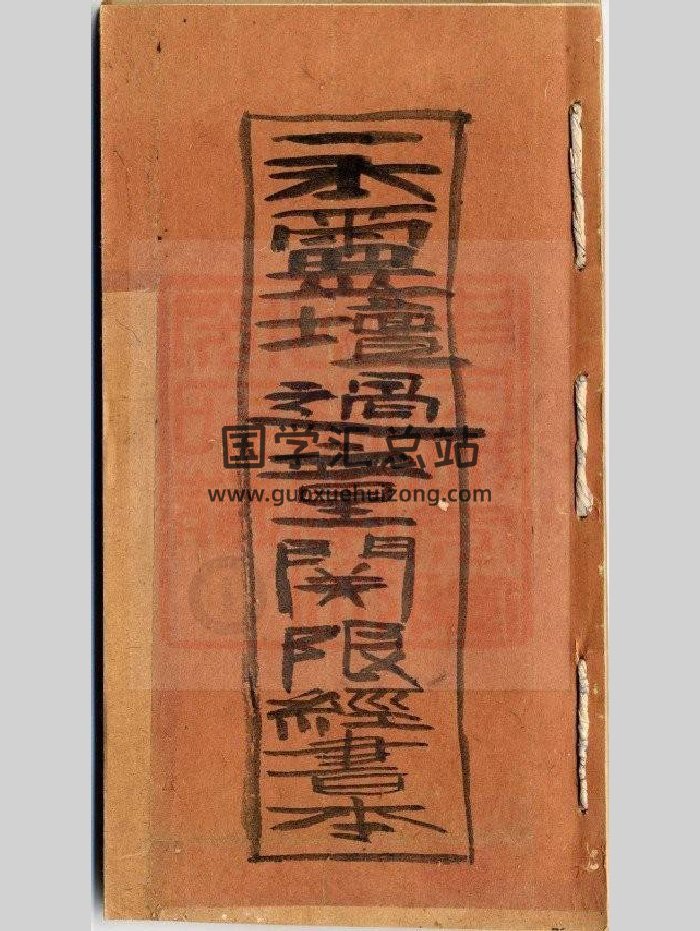 永靈壇過童関限經書本
国学汇总站
www.guoxuehuizong.com